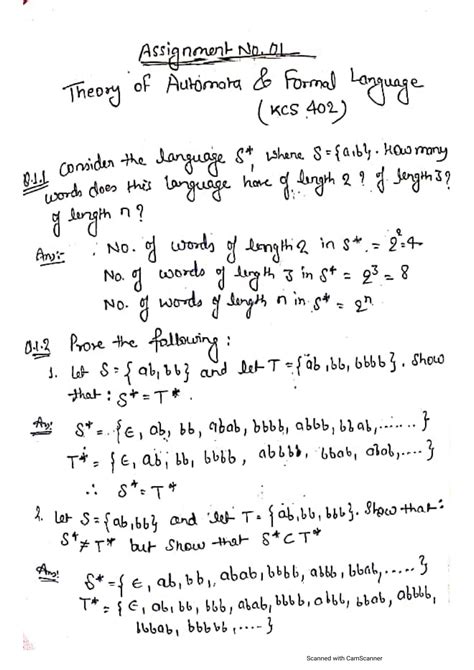 Assignment No. 01
Theory of Automata & Formal Language
(KCS 402)
Q.1.1 Consider the language S*, where S = {a,b}. How many
words does this language have of length 2? of length 3?
of length n?
Ans:- No. of words of length 2 in S* = 2² = 4
No. of words of length 3 in S* = 2³ = 8
No. of words of length n in S* = 2ⁿ
Q.1.2 Prove the following :
1. Let S = {ab, bb} and let T = {ab, bb, bbbb}. Show
that : S* = T*.
Ans: S* = {ε, ab, bb, abab, bbbb, abbb, bbab, ......}
T* = {ε, ab, bb, bbbb, abbb, bbab, abab, ....}
∴ S* = T*
2. Let S = {ab, bb} and let T = {ab, bb, bbb}. Show that:
S* ≠ T* but show that S* ⊂ T*
Ans: S* = {ε, ab, bb, abab, bbbb, abbb, bbab, .....}
T* = {ε, ab, bb, bbb, abab, bbbb, abbb, bbab, abbbb,
bbbab, bbbbb, ....}
Scanned with CamScanner